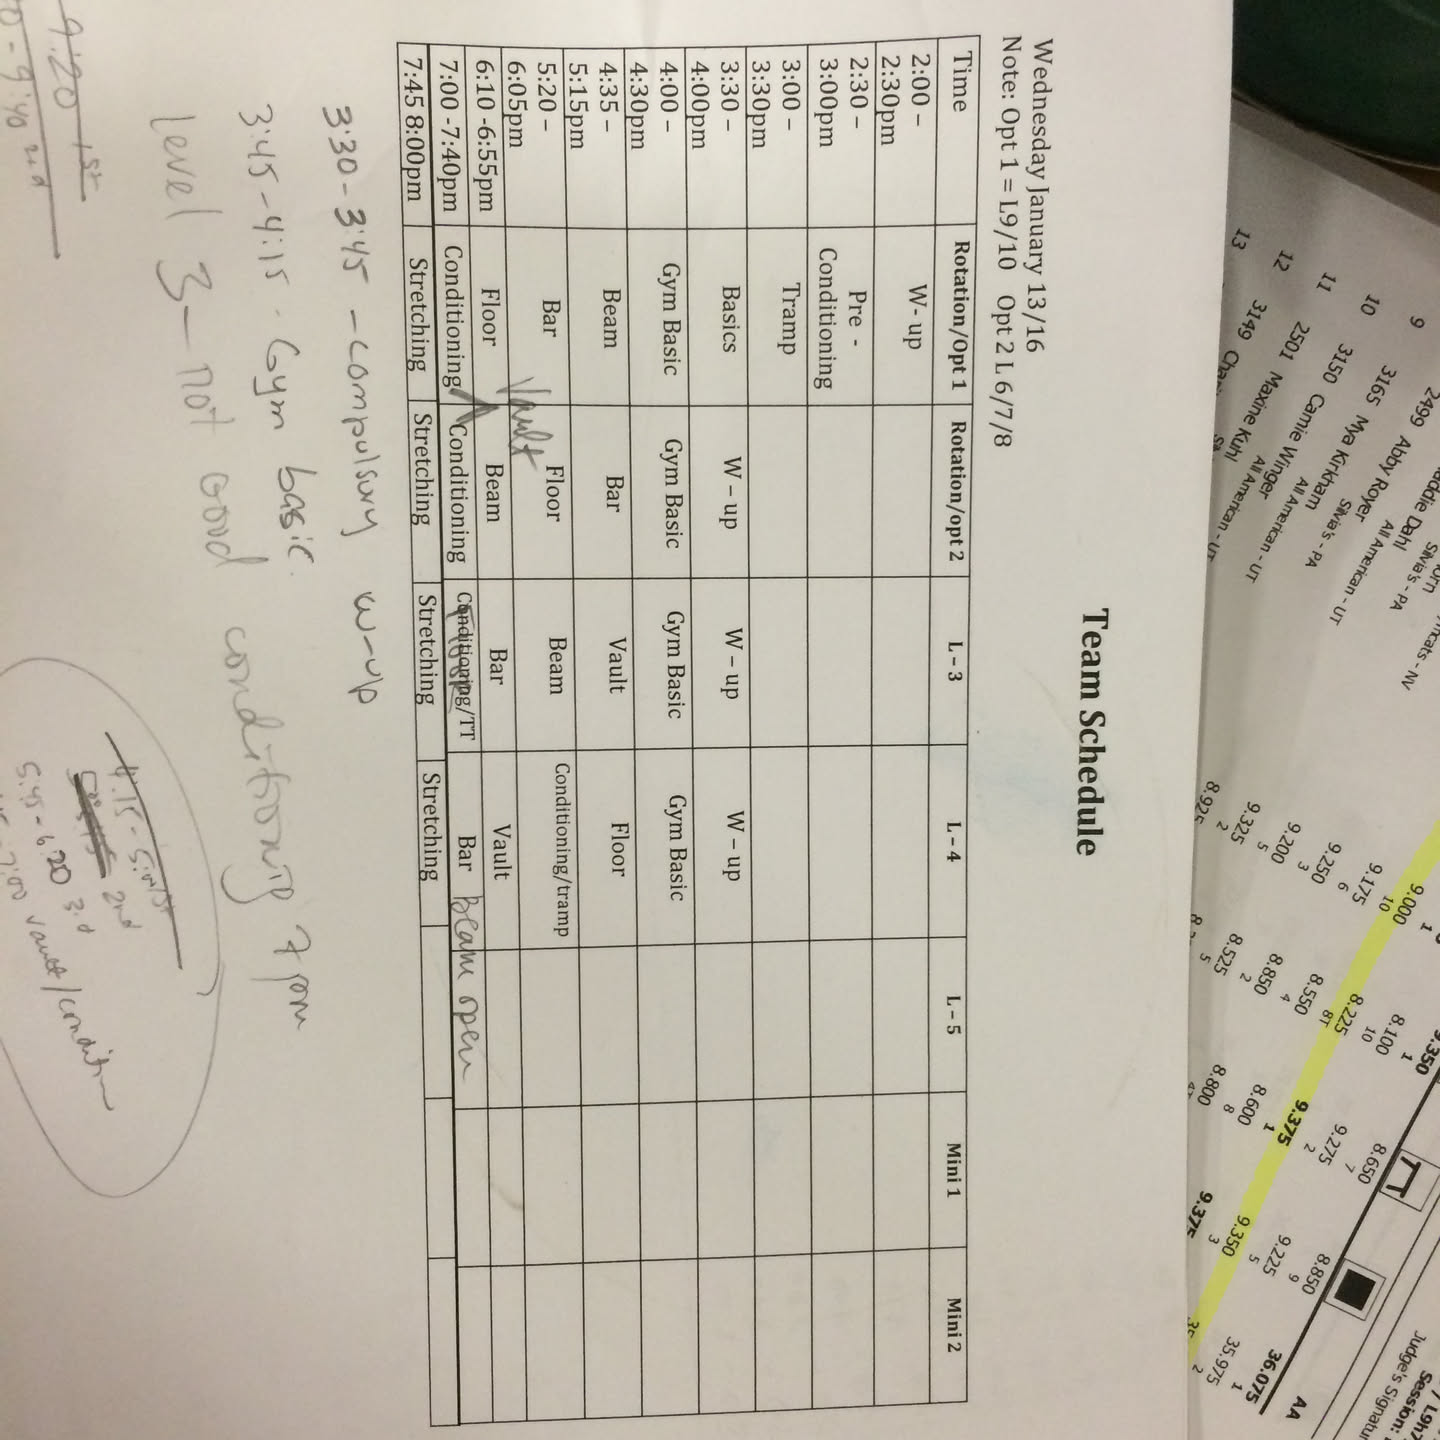 Team Schedule
Wednesday January 13/16
Note: Opt 1 = L9/10 Opt 2 L 6/7/8
Time Rotation/Opt 1 Rotation/opt 2 L – 3 L – 4 L – 5 Mini 1 Mini 2
2:00 – 2:30pm W- up
2:30 – 3:00pm Pre - Conditioning
3:00 – 3:30pm Tramp
3:30 – 4:00pm Basics W – up W – up W – up
4:00 – 4:30pm Gym Basic Gym Basic Gym Basic Gym Basic
4:35 – 5:15pm Beam Bar Vault Floor
5:20 – 6:05pm Bar Floor Beam Conditioning/tramp
Vault
6:10 -6:55pm Floor Beam Bar Vault
7:00 -7:40pm Conditioning Conditioning Conditioning/TT Bar Beam open
Floor
7:45 8:00pm Stretching Stretching Stretching Stretching
3:30 - 3:45 - compulsury w-up
3:45 - 4:15 - Gym basic.
level 3 - not good conditioning 7 pm
9:20 1st
9:40 2nd
4:15 - 5:00 1st
2nd
5:45 - 6:20 3rd
7:00 vault/condition
2499 Abby Royer
All American - UT
9 3165 Mya Kirkham
Silvia's - PA
10 3150 Camie Winger
All American - UT
11 2501 Maxine Kuhl
All American - UT
12 3149
13
addie Dahl
Silvia's - PA
cats - NV
9.000 8.100 9.350 8.650 8.850 36.075
10 1 7 9 1
9.175 8.225 9.275 9.225 35.975
6 10 2 5 2
9.250 8.550 9.375 9.350
3 8T 1
9.200 8.850 8.600 9.375
5 4 8 3
9.325 8.525 8.800
2 2
8.925
5
AA
Judge's Signatu
Session: